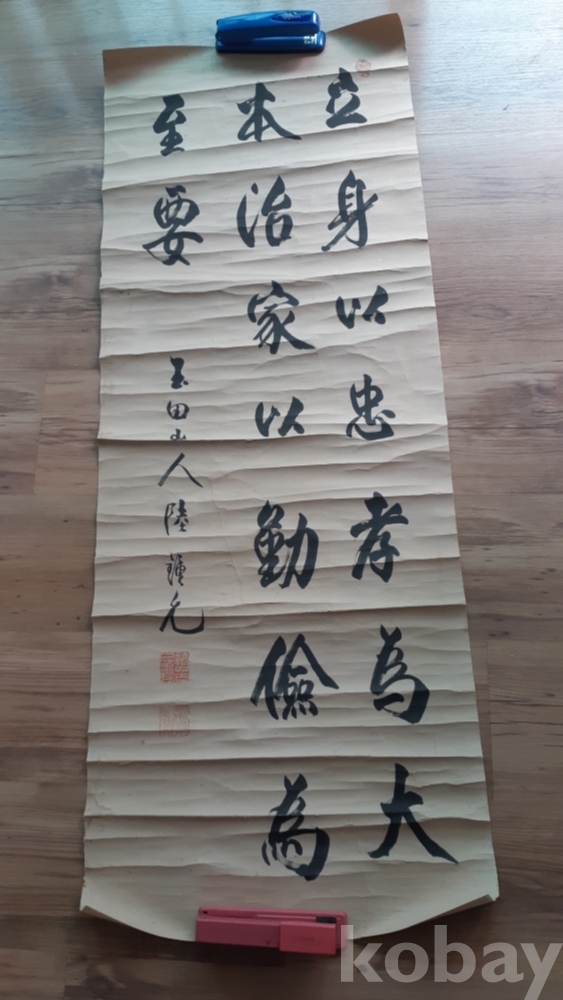 立身以忠孝為大
本治家以勤儉為
至要
玉田山人陸鍾允
kobay